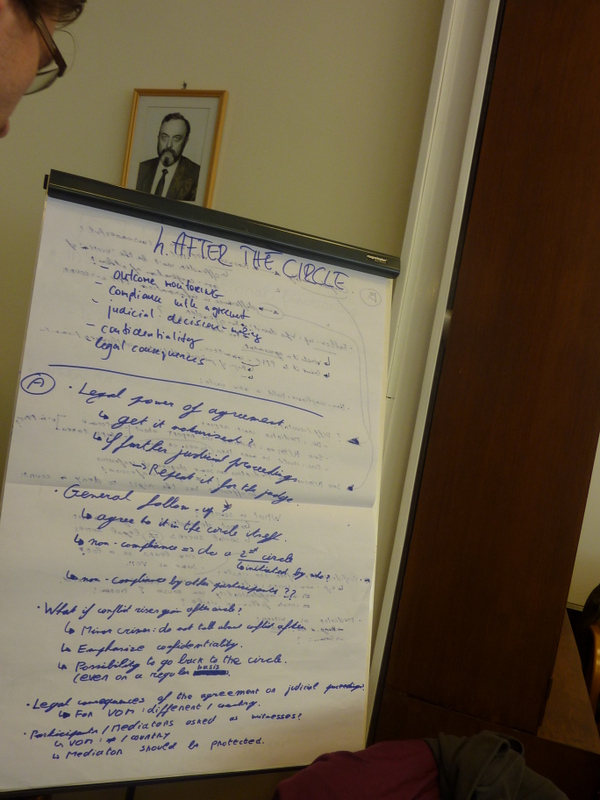 4. AFTER THE CIRCLE
- outcome monitoring
- compliance with agreement
- judicial decision-making
- confidentiality
legal consequences
A
· Legal power of agreement
↳ get it notarised?
↳ if further judicial proceedings
→ Repeat it for the judge.
· General follow-up
↳ agree to it in the circle itself.
↳ non-compliance do a 2nd circle
↳ initiated by who?
↳ non-compliance by other participants??
· What if conflict rises again after circle?
↳ Minor crimes: do not talk about conflict after
↳ Emphasize confidentiality.
↳ Possibility to go back to the circle.
(even on a regular basis
· Legal consequences of the agreement on judicial proceedings
↳ For VOM: different / country.
· Participants / Mediators asked as witnesses?
↳ VOM: ≠ / country
↳ Mediator should be protected.